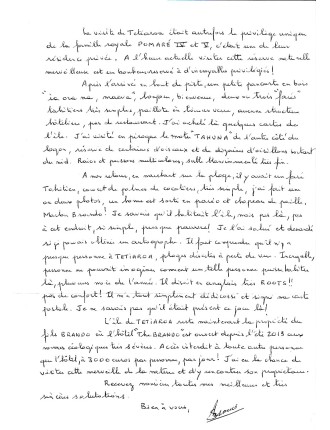 La visite de Tetiaroa était autrefois le privilège unique
de la famille royal POMARÉ IV et V, c'était un de leur
résidence privée. A l'heure actuelle visiter cette réserve naturelle
merveilleuse est un bonheur réservé à d'incroyables privilégiés!
Après l'arrivée en bout de piste, un petit pancarte en bois
"ia ora na, maeva", bonjour, bienvenue, deux ou trois "farés"
tahitiens très simples, paillote en bambou, aucune structure
hôtelier, pas de restaurant. J'ai acheté là quelques cartes de
l'île. J'ai visité en pirogue le motu "TAHUNA" de l'autre côté du
lagon, réserve de centaines d'oiseaux et de dizaines d'oisillons
du nid. Raies et poissons multicolores, sable blanc très fin.
A mon retour, en marchant sur la plage, il y avait un faré
Tahitien, couvert de palmes de cocotiers, très simple, j'ai fait un
ou deux photos, un homme est sorti en paréo et chapeau de paille,
Marlon Brando! Je savais qu'il habitait l'île, mais pas là, pas
à cet endroit, si simple, presque pauvre! Je l'ai salué et demandé
si je pouvais obtenir un autographe. Il faut comprendre qu'il n'y a
presque personne à TETIAROA, plage déserte à perte de vue. Incroyable,
personne ne pouvait imaginer comment un telle personne puisse habiter
là, plusieurs mois de l'année. Il disait en anglais his ROOTS!!
pas de confort! Il m'a tout simplement dédicacé et signé ma carte
postale. Je ne savais pas qu'il était présent ce jour là!
L'île de TETIAROA reste maintenant la propriété du
fils BRANDO où l'hôtel The BRANDO est ouvert depuis l'été 2013 aux
normes écologiques très sévères. Accès interdit à toute autre personne
que l'hôtel, à 3000 euros par personne, par jour! J'ai eu la chance de
visiter cette merveille de la nature et d'y rencontrer son propriétaire.
Recevez monsieur toutes mes meilleures et très
sincères salutations.
Bien à vous,